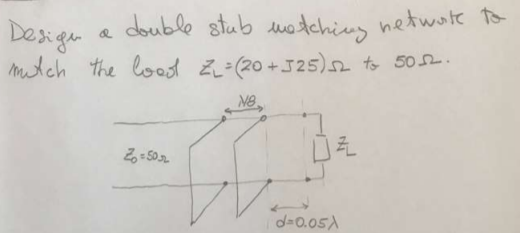 Design a double stub matching network to
match the load ZL=(20+J25)Ω to 50Ω.
Z0=50Ω
ZL
d=0.05λ